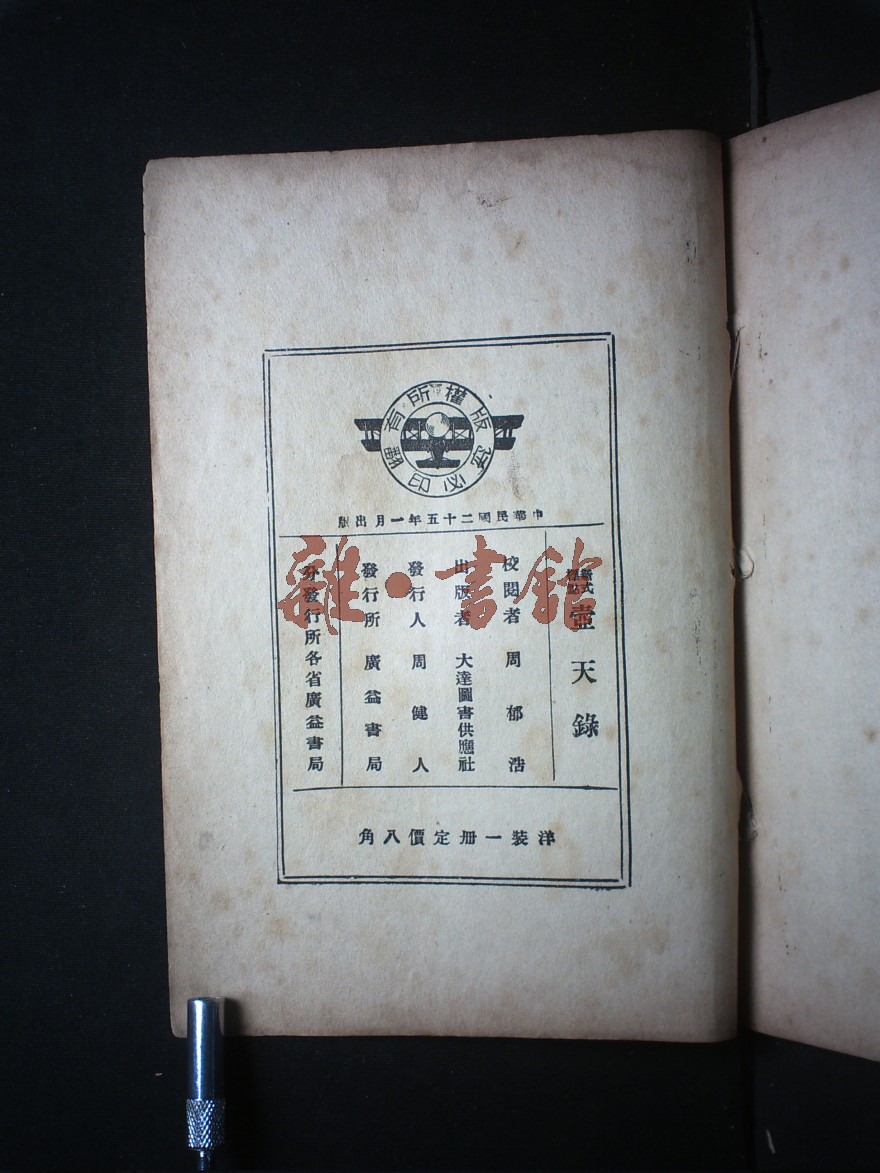 版權所有翻印必究
中華民國二十五年一月出版
新式標點 壺天錄
校閱者 周郁浩
出版者 大達圖書供應社
發行人 周健人
發行所 廣益書局
分發行所各省廣益書局
洋裝一册定價八角
雜·書館